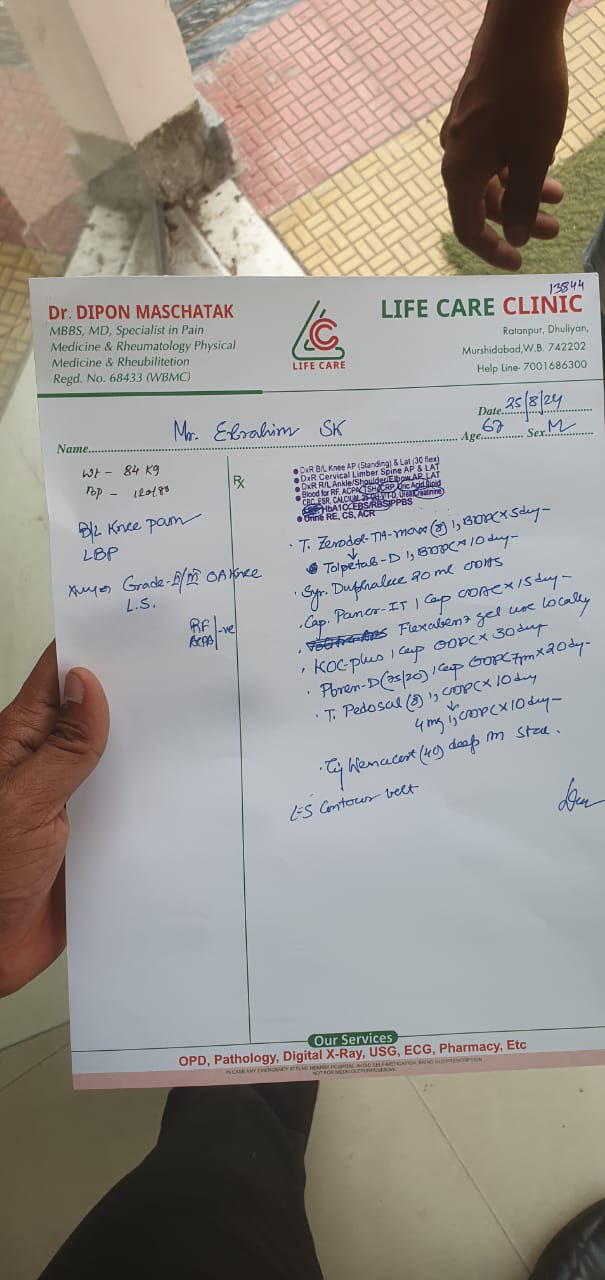 13844
Dr. DIPON MASCHATAK
MBBS, MD, Specialist in Pain
Medicine & Rheumatology Physical
Medicine & Rheubilitetion
Regd. No. 68433 (WBMC)
LIFE CARE
LIFE CARE CLINIC
Ratanpur, Dhuliyan,
Murshidabad,W.B. 742202
Help Line- 7001686300
Date 25/8/24
Name Mr. Ebrahim SK Age 67 Sex M
Wt - 84 Kg
BP - 120/80
B/L Knee pain
LBP
Grade- OA Knee
L.S.
RF
ACPA -ve
Rx
DxR B/L Knee AP (Standing) & Lat (30 flex)
DxR Cervical Limber Spine AP & LAT
DxR R/L Ankle/Shoulder/Elbow AP, LAT
Blood for RF, ACPA, TSH, CRP, Uric Acid
CBC, ESR, CALCIUM, Urea Creatinine
HbA1C FBS/RBS/PPBS
Urine RE, CS, ACR
T. Zerodol-TA-max (8) 1, BDPC x 5 day
Tolpetab-D 1, BDPC x 10 day
Syr. Duphalac 20 ml
Cap. Pancr-IT 1 Cap ODAC x 15 day
Flexabenz gel use locally
KOC-plus 1 Cap ODPC x 30 day
(75/20) 1 Cap ODPC x 20 day
T. (8) 1, ODPC x 10 day
4 mg 1, ODPC x 10 day
(40) deep IM stat.
L-S Contour belt
Our Services
OPD, Pathology, Digital X-Ray, USG, ECG, Pharmacy, Etc